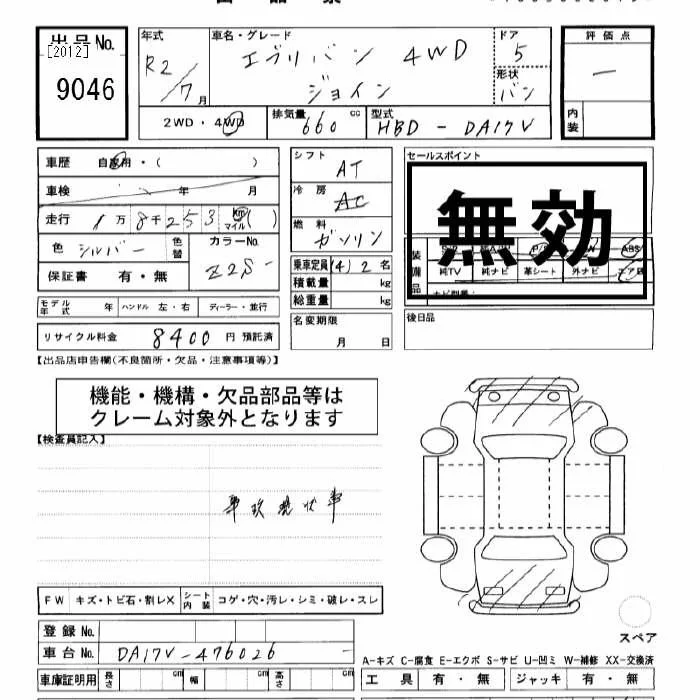 出品No.
[2012]
9046
年式
R2/7月
車名・グレード
エブリバン 4WD
ジョイン
ドア
5
形状
バン
評価点
—
内装
2WD・4WD
排気量
660 cc
型式
HBD-DA17V
車歴 自家用・( )
車検 年 月
走行 1万8千253 km マイル ( )
色 シルバー 色替
カラーNo.
Z2S-
保証書 有・無
シフト
AT
冷房
AC
燃料
ガソリン
乗車定員 (4) 2 名
積載量 kg
総重量 kg
セールスポイント
無効
装備品
ABS
純TV 純ナビ 革シート 外ナビ エアB
モデル年式 年 ハンドル 左・右 ディーラー・並行
名変期限
月 日
後日品
リサイクル料金 8400 円 預託済
【出品店申告欄(不良箇所・欠品・注意事項等)】
機能・機構・欠品部品等は
クレーム対象外となります
【検査員記入】
事故現状車
FW キズ・トビ石・割レX シート内装 コゲ・穴・汚レ・シミ・破レ・スレ
スペア
登録No.
車台No. DA17V-476026
A-キズ C-腐食 E-エクボ S-サビ U-凹ミ W-補修 XX-交換済
車庫証明用 長さ cm 幅 cm 高さ cm
工具 有・無 ジャッキ 有・無